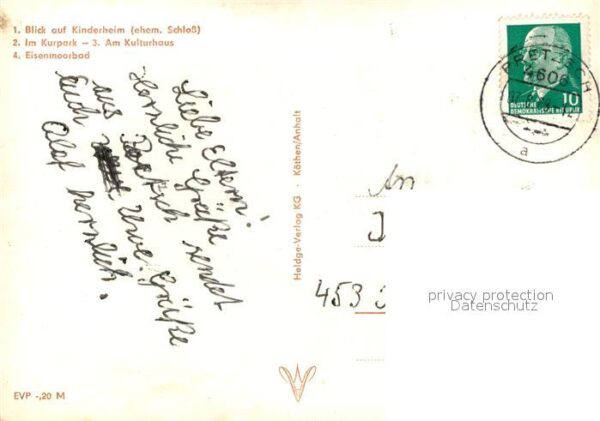 1. Blick auf Kinderheim (ehem. Schloß)
2. Im Kurpark – 3. Am Kulturhaus
4. Eisenmoorbad
Liebe Eltern!
Herzliche Grüße
aus Pretzsch sendet
Euch Uwe. Grüße
Olaf herzlich.
Heldge-Verlag KG · Köthen/Anhalt
PRETZSCH
4606
a
10
DEUTSCHE
DEMOKRATISCHE REPUBLIK
An
453
privacy protection
Datenschutz
EVP -,20 M